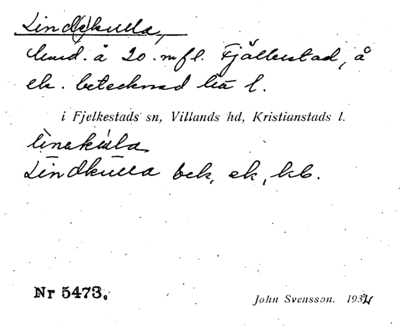 Lind(e)kulla,
hmd. å 20. m fl. Fjälkestad, å
ek. betecknad l.
i Fjelkestads sn, Villands hd, Kristianstads l.
Lindkulla bek, ek, kb.
Nr 5473. John Svensson. 1934